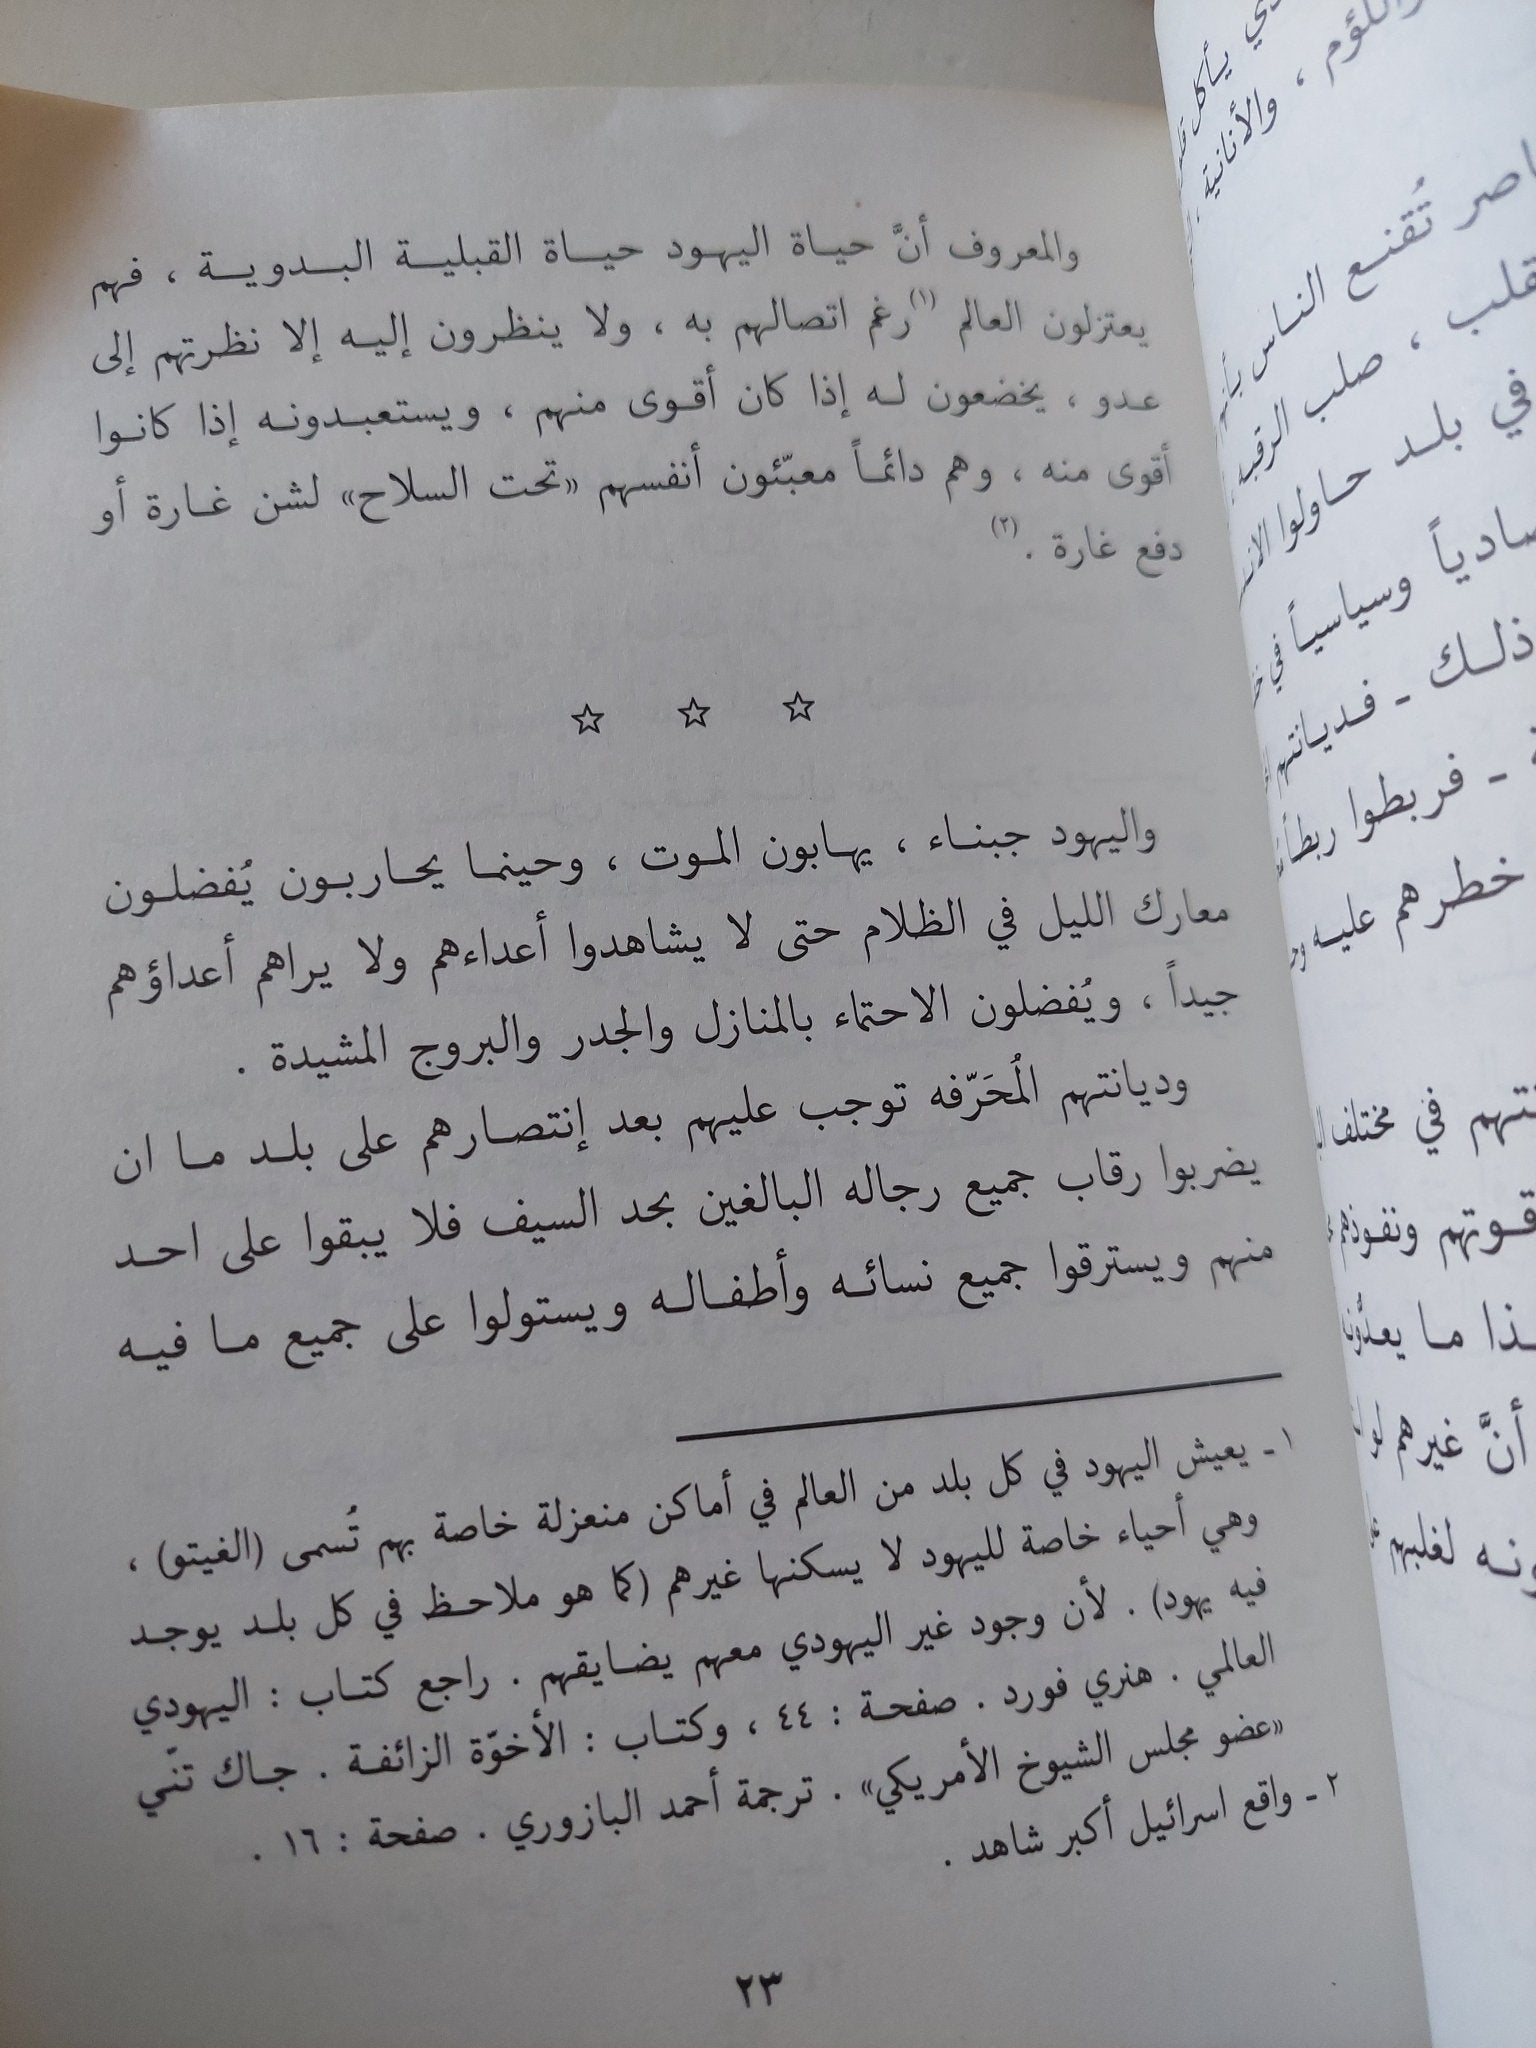 والمعروف أنَّ حياة اليهود حياة القبلية البدوية ، فهم
يعتزلون العالم (١) رغم اتصالهم به ، ولا ينظرون إليه إلا نظرتهم إلى
عدو ، يخضعون له إذا كان أقوى منهم ، ويستعبدونه إذا كانوا
أقوى منه ، وهم دائماً معبّئون أنفسهم «تحت السلاح» لشن غارة أو
دفع غارة . (٢)
☆ ☆ ☆
واليهود جبناء ، يهابون الموت ، وحينما يحاربون يُفضلون
معارك الليل في الظلام حتى لا يشاهدوا أعداءهم ولا يراهم أعداؤهم
جيداً ، ويُفضلون الاحتماء بالمنازل والجدر والبروج المشيدة .
وديانتهم المُحَرّفه توجب عليهم بعد إنتصارهم على بلد ما ان
يضربوا رقاب جميع رجاله البالغين بحد السيف فلا يبقوا على احد
منهم ويسترقوا جميع نسائه وأطفاله ويستولوا على جميع ما فيه
١ - يعيش اليهود في كل بلد من العالم في أماكن منعزلة خاصة بهم تُسمى (الغيتو) ،
وهي أحياء خاصة لليهود لا يسكنها غيرهم (كما هو ملاحظ في كل بلد يوجد
فيه يهود) . لأن وجود غير اليهودي معهم يضايقهم . راجع كتاب : اليهودي
العالمي . هنري فورد . صفحة : ٤٤ ، وكتاب : الأخوّة الزائفة . جاك تنّي
«عضو مجلس الشيوخ الأمريكي» . ترجمة أحمد اليازوري . صفحة : ١٦ .
٢ - واقع اسرائيل أكبر شاهد .
٢٣
واللؤم ، والأنانية
تُقنع الناس
صلب
في بلد حاولوا
وسياسياً في
ذلك - فديانتهم
- فربطوا
خطرهم عليه
في مختلف
قوتهم ونفوذهم
ما
أنَّ غيرهم